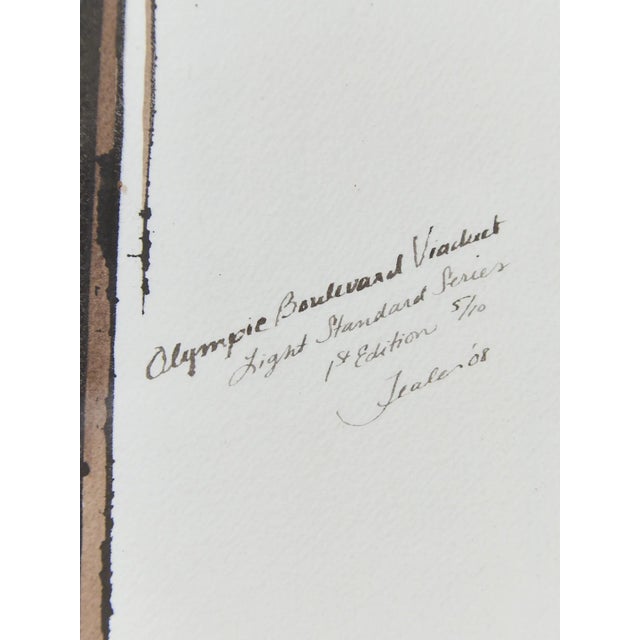 Olympic Boulevard Viaduct
Light Standard Series
1st Edition 5/10
'08